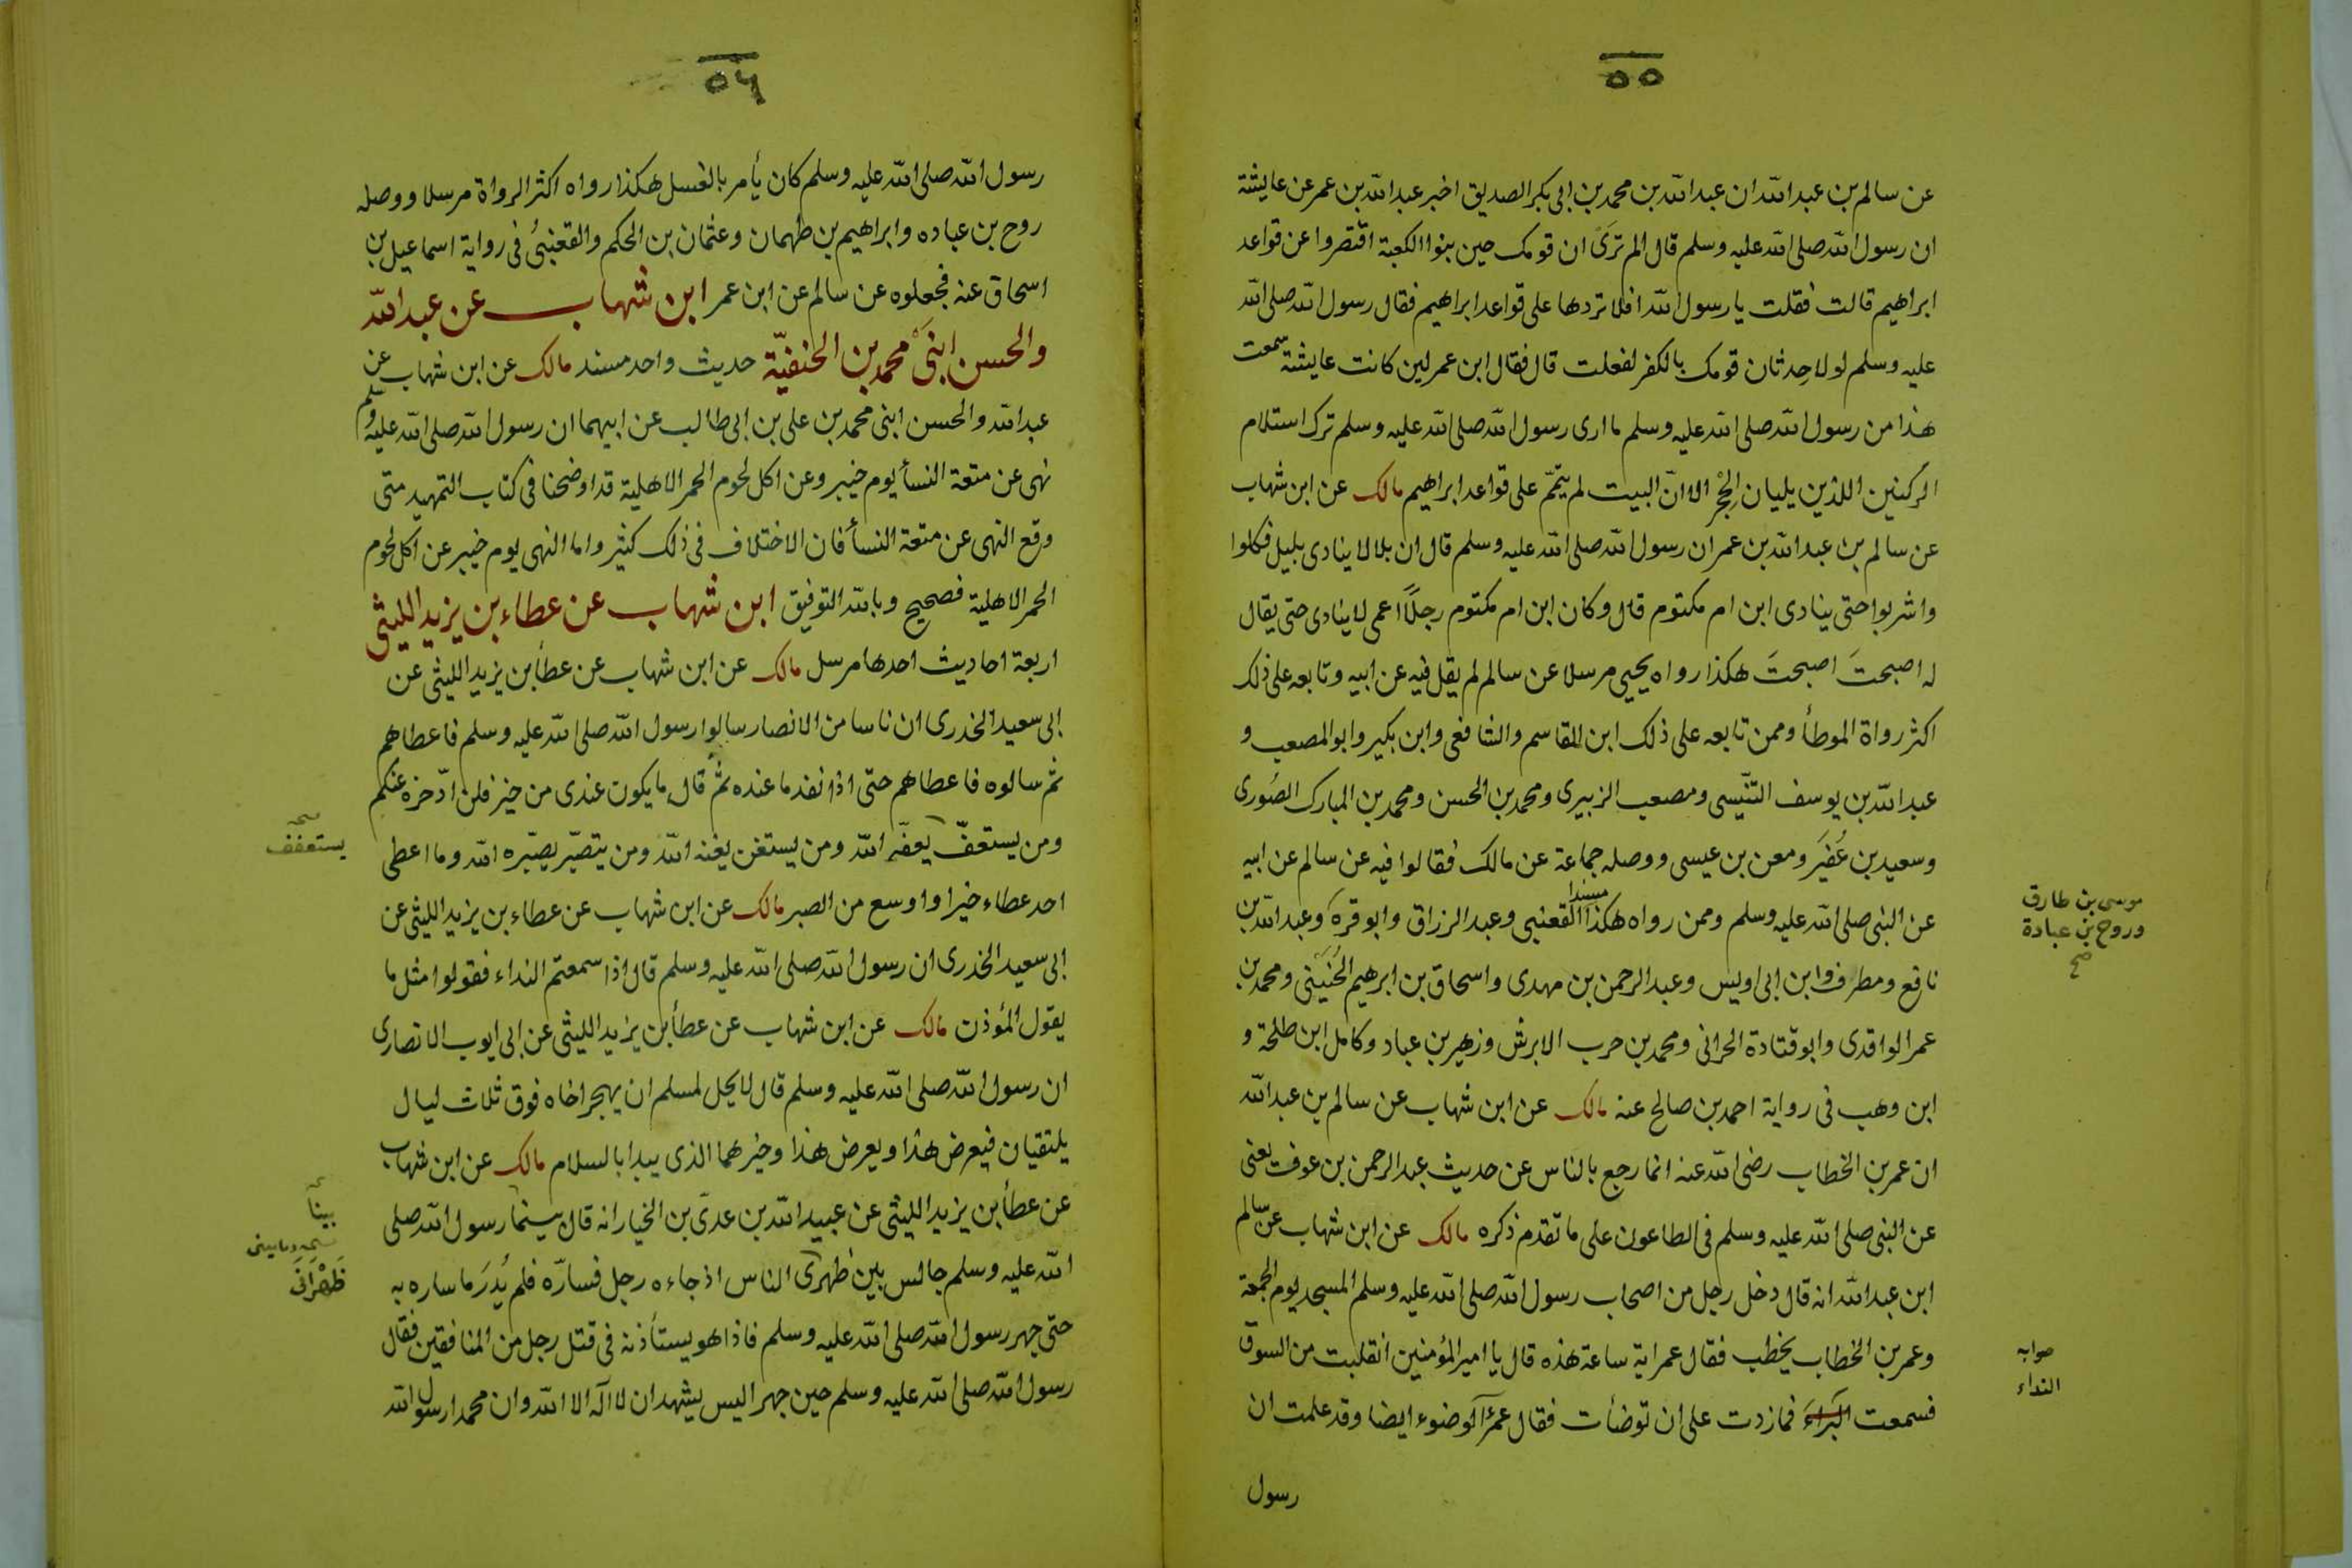 ٥٥
عن سالم بن عبد الله ان عبد الله بن محمد بن ابى بكر الصديق اخبر عبد الله بن عمر عن عايشة
ان رسول الله صلى الله عليه وسلم قال الم ترَىْ ان قومك حين بنوا الكعبة اقتصروا عن قواعد
ابراهيم قالت فقلت يا رسول الله افلا تردها على قواعد ابراهيم فقال رسول الله صلى الله
عليه وسلم لولا حِدثان قومك بالكفر لفعلت قال فقال ابن عمر لين كانت عايشة سمعت
هذا من رسول الله صلى الله عليه وسلم ما ارى رسول الله صلى الله عليه وسلم ترك استلام
الركنين اللذين يليان الحِجْر الا انّ البيت لم يتمّم على قواعد ابراهيم مالك عن ابن شهاب
عن سالم بن عبد الله بن عمر ان رسول الله صلى الله عليه وسلم قال ان بلالا ينادى بليل فكلوا
واشربوا حتى ينادى ابن ام مكتوم قال وكان ابن ام مكتوم رجلاً اعمى لا ينادى حتى يقال
له اصبحتَ اصبحتَ هكذا رواه يحيى مرسلا عن سالم لم يقل فيه عن ابيه وتابعه على ذلك
اكثر رواة الموطأ وممن تابعه على ذلك ابن القاسم والشافعى وابن بكير وابو المصعب و
عبد الله بن يوسف التنّيسى ومصعب الزبيرى ومحمد بن الحسن ومحمد بن المبارك الصُورى
وسعيد بن عُفَير ومعن بن عيسى ووصله جماعة عن مالك فقالوا فيه عن سالم عن ابيه
عن النبى صلى الله عليه وسلم وممن رواه هكذا مسندا القعنبى وعبد الرزاق وابو قرة وعبد الله بن
موسى بن طارق
وروح بن عبادة
صح
نافع ومطرف وابن ابى اويس وعبد الرحمن بن مهدى واسحاق بن ابرهيم الحُنَينى ومحمد بن
عمر الواقدى وابو قتادة الحرانى ومحمد بن حرب الابرش وزهير بن عباد وكامل ابن طلحة و
ابن وهب فى رواية احمد بن صالح عنه مالك عن ابن شهاب عن سالم بن عبد الله
ان عمر بن الخطاب رضى الله عنه انما رجع بالناس عن حديث عبد الرحمن بن عوف يعنى
عن النبى صلى الله عليه وسلم فى الطاعون على ما تقدم ذكره مالك عن ابن شهاب عن سالم
ابن عبد الله انه قال دخل رجل من اصحاب رسول الله صلى الله عليه وسلم المسجد يوم الجمعة
وعمر بن الخطاب يخطب فقال عمر اية ساعة هذه قال يا امير المؤمنين انقلبت من السوق
صوابه
النداء
فسمعت البَرَاءَ فما زدت على ان توضأت فقال عمر آلوضوء ايضا وقد علمت ان
رسول
٥٦
رسول الله صلى الله عليه وسلم كان يأمر بالغسل هكذا رواه اكثر الرواة مرسلا ووصله
روح بن عباده وابراهيم بن طهمان وعثمان بن الحكم والقعنبىُ فى رواية اسماعيل بن
اسحاق عنه فجعلوه عن سالم عن ابن عمر ابن شهاب عن عبد الله
والحسن ابنَىْ محمد بن الحنفيّة حديث واحد مسند مالك عن ابن شهاب عن
عبد الله والحسن ابنى محمد بن على بن ابى طالب عن ابيهما ان رسول الله صلى الله عليه وسلم
نهى عن متعة النسأ يوم خيبر وعن اكل لحوم الحمر الاهلية قد اوضحنا فى كتاب التمهيد متى
وقع النهى عن متعة النسأ فان الاختلاف فى ذلك كثير واما النهى يوم خيبر عن اكل لحوم
الحمر الاهلية فصحيح وبالله التوفيق ابن شهاب عن عطاء بن يزيد الليثى
اربعة احاديث احدها مرسل مالك عن ابن شهاب عن عطأ بن يزيد الليثى عن
ابى سعيد الخدرى ان ناسا من الانصار سالوا رسول الله صلى الله عليه وسلم فاعطاهم
ثم سالوه فاعطاهم حتى اذا نفد ما عنده ثم قال ما يكون عندى من خير فلن ادّخره عنكم
ومن يستعفّ يعفّه الله ومن يستغن يغنه الله ومن يتصبّر يصبّره الله وما اعطى
يستعفف
احد عطاء خيرا واوسع من الصبر مالك عن ابن شهاب عن عطاء بن يزيد الليثى عن
ابى سعيد الخدرى ان رسول الله صلى الله عليه وسلم قال اذا سمعتم النداء فقولوا مثل ما
يقول المؤذن مالك عن ابن شهاب عن عطأ بن يزيد الليثى عن ابى ايوب الانصارى
ان رسول الله صلى الله عليه وسلم قال لا يحل لمسلم ان يهجر اخاه فوق ثلاث ليال
يلتقيان فيعرض هذا ويعرض هذا وخيرهما الذى يبدا بالسلام مالك عن ابن شهاب
عن عطأ بن يزيد الليثى عن عبيد الله بن عدىّ بن الخيار انه قال بينما رسول الله صلى
بينا
الله عليه وسلم جالس بين ظهرى الناس اذ جاءه رجل فسارّه فلم يُدرَ ما ساره به
ظَهْرَانَى
حتى جهر رسول الله صلى الله عليه وسلم فاذا هو يستأذنه فى قتل رجل من المنافقين فقال
رسول الله صلى الله عليه وسلم حين جهر اليس يشهد ان لا اله الا الله وان محمدا رسول الله